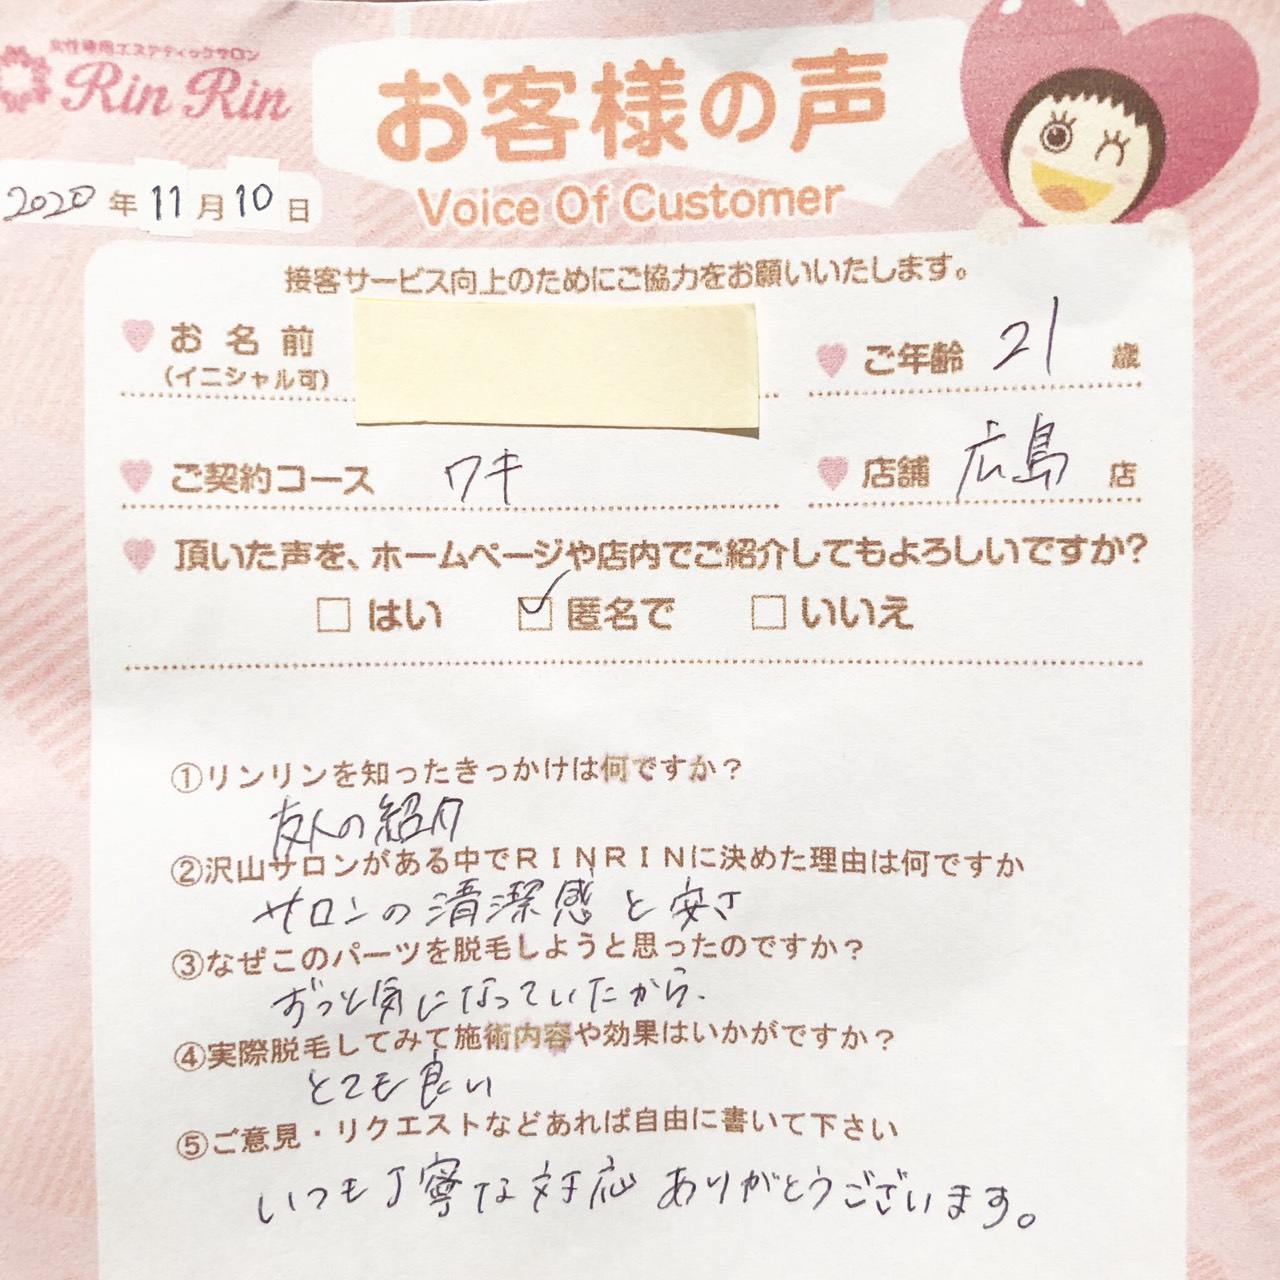 女性専用エステティックサロン
Rin Rin
お客様の声
Voice Of Customer
2020年11月10日
接客サービス向上のためにご協力をお願いいたします。
お名前
(イニシャル可)
ご年齢 21 歳
ご契約コース ワキ
店舗 広島 店
頂いた声を、ホームページや店内でご紹介してもよろしいですか?
はい 匿名で いいえ
①リンリンを知ったきっかけは何ですか？
友人の紹介
②沢山サロンがある中でＲＩＮＲＩＮに決めた理由は何ですか
サロンの清潔感と安さ
③なぜこのパーツを脱毛しようと思ったのですか？
ずっと気になっていたから.
④実際脱毛してみて施術内容や効果はいかがですか？
とても良い
⑤ご意見・リクエストなどあれば自由に書いて下さい
いつも丁寧な対応ありがとうございます。